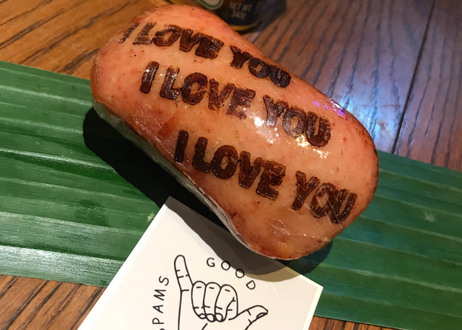 I LOVE YOU
I LOVE YOU
I LOVE YOU
GOOD
PAMS